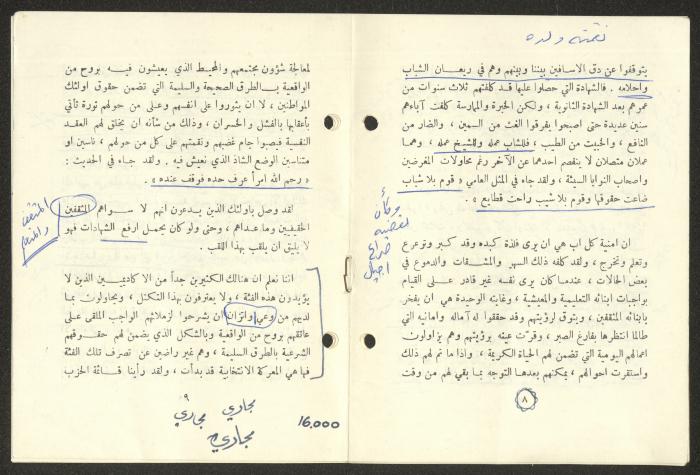 نقمته ولده
يتوقفوا عن دق الاسافين بيننا وبينهم وهم في ريعـان الشباب
واحلامه . فالشهادة التي حصلوا عليها قـد كلفتهم ثلاث سنوات من
عمرهم بعد الشهادة الثانوية ، ولكن الخبرة والممارسة كلفت آباءهم
سنين عديدة حتى اصبحوا يفرقوا الغث من السمين ، والضار من
النافع ، والخبيث من الطيب ، فللشاب عمله وللشيخ عمله ، وهما
عملان متصلان لا ينفصم احدهما عن الآخر رغم محاولات المغرضين
واصحاب النوايا السيئة ، ولقد جاء في المثل العامي « قوم بلا شباب
ضاعت حقوقها وقوم بلا شيب راحت قطايع » .
وكأن
القضية
صراع
اجيال
ان امنية كل اب هي ان يرى فلذة كبده وقد كبر وترعرع
وتعلم وتخرج ، ولقد كلفه ذلك السهر والمشقات والدموع في
بعض الحالات ، عندما كان يرى نفسه غير قادر على القيام
بواجبات ابنائه التعليمية والمعيشية ، وغايته الوحيدة هي ان يفخر
بابنائه المثقفين ، ويتوق لرؤيتهم وقد حققوا له آماله وامانيه التي
طالما انتظرها بفارغ الصبر ، وقرّت عينه برؤيتهم وهم يزاولون
اعمالهم اليومية التي تضمن لهم الحياة الكريمة ، واذا ما تم لهم ذلك
واستقرت احوالهم ، يمكنهم بعدها التوجه بما بقي لهم من وقت
٨
لمعالجة شؤون مجتمعهم والمحيط الذي يعيشون فيه بروح من
الواقعية بالطرق الصحيحة والسليمة التي تضمن حقوق اولئك
المواطنين ، لا ان يثوروا على انفسهم وعلى من حولهم ثورة تأتي
بأعقابها بالفشل والخسران ، وذلك من شأنه ان يخلق لهم العقد
النفسية فيصبوا جام غضبهم ونقمتهم على كل من حولهم ، ناسين او
متناسين الوضع الشاذ الذي نعيش فيه . ولقد جاء في الحديث :
« رحم الله امرأ عرف حده فوقف عنده » .
المثقف
والمتعلم
لقد وصل باولئك الذين يدعون انهم لا سواهم المثقفين
الحقيقيين وما عداهم ، وحتى ولو كان يحمل ارفع الشهادات فهو
لا يليق ان يلقب بهذا اللقب .
اننا نعلم ان هنالك الكثيرين جداً من الاكاديميين الذين لا
يؤيدون هذه الفئة ، ولا يعترفون بهذا التكتل ، ويحاولون بما
لديهم من وعي واتزان ان يشرحوا لزملائهم الواجب الملقى على
عاتقهم بروح من الواقعية وبالشكل الذي يضمن لهم حقوقهم
الشرعية بالطرق السليمة ، وهم غير راضين عن تصرف تلك الفئة
فها هي المعركة الانتخابية قد بدأت ، ولقد رأينا قائمة الحزب
مجاري
مجاري
مجاري
16.000